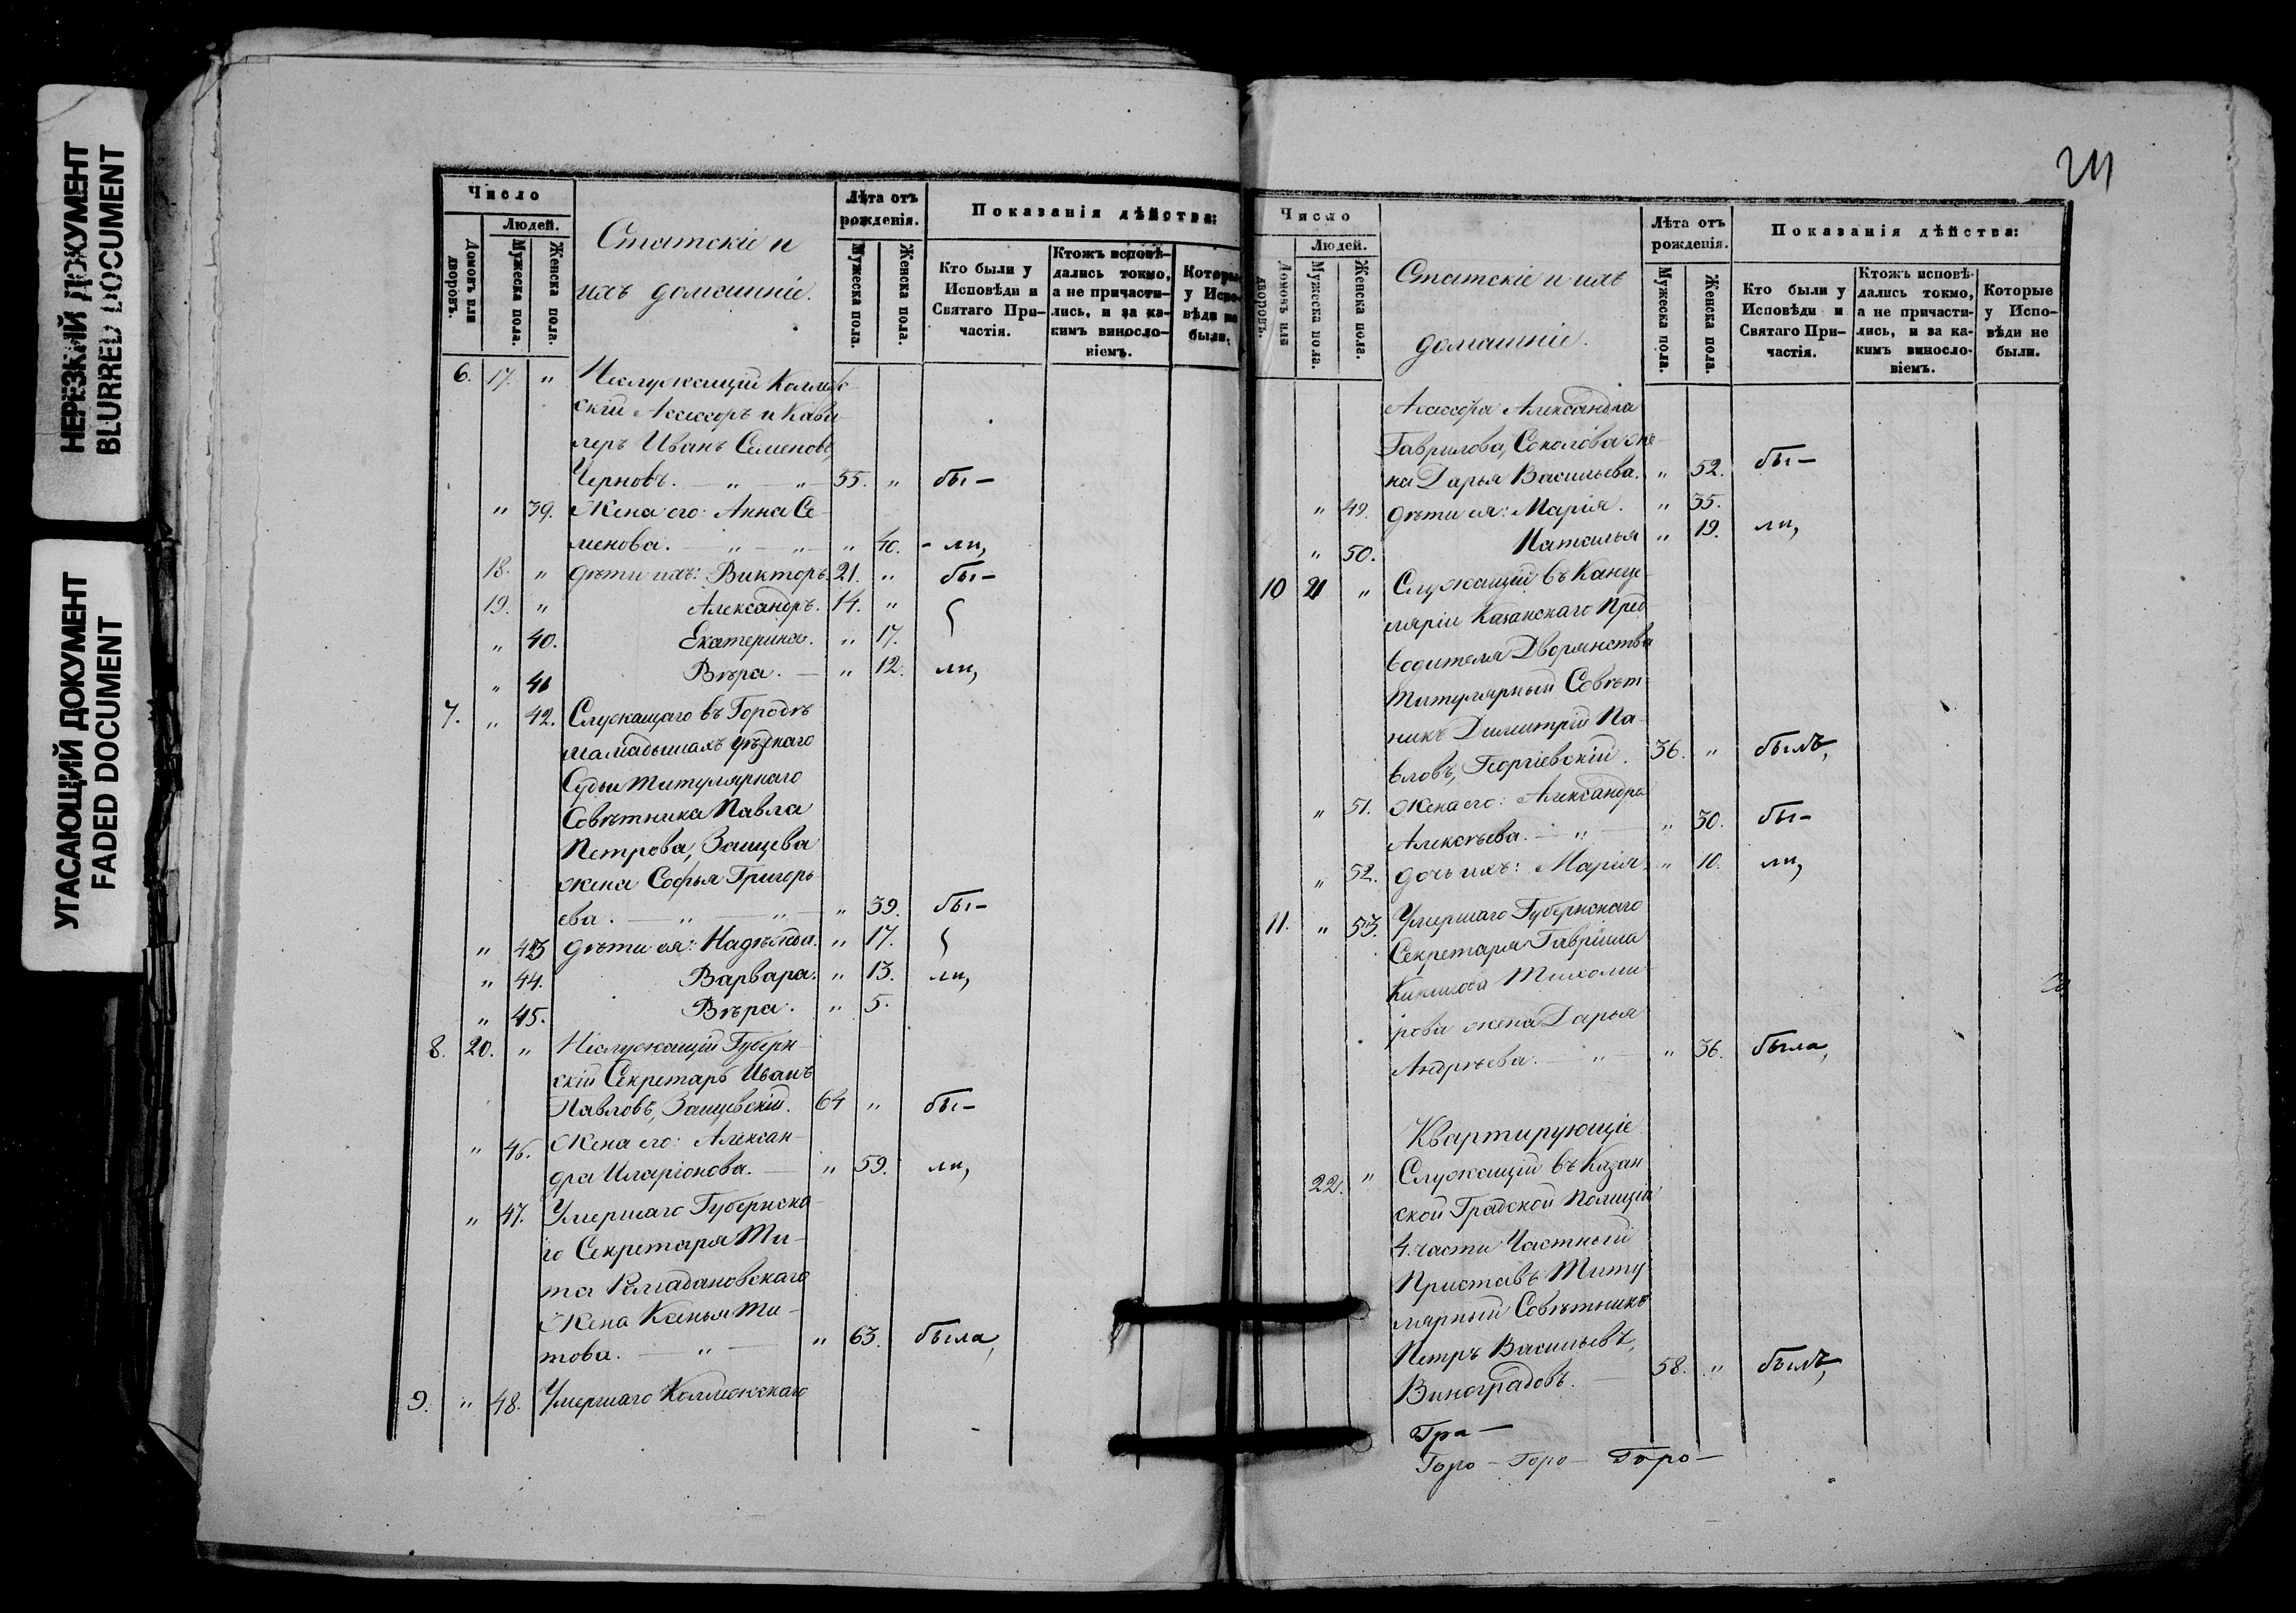 НЕРЕЗКИЙ ДОКУМЕНТ
BLURRED DOCUMENT
УГАСАЮЩИЙ ДОКУМЕНТ
FADED DOCUMENT
Число
Людей.
Домовъ или дворовъ.
Мужеска пола.
Женска пола.
Статскіе и
ихъ домашніе.
Лѣта отъ рожденія.
Мужеска пола.
Женска пола.
Показанія дѣйства:
Кто были у Исповѣди и Святаго Причастія.
Ктожъ исповѣдались токмо, а не причастились, и за какимъ винословіемъ.
Которые у Исповѣди не были.
6. 17. " Неслужащій Коллеж-
скій Ассесоръ и Кава-
леръ Иванъ Семеновъ,
Черновъ. — " — " — 55. " бы-
" 39. Жена его: Анна Се-
менова. — " — " — " 40. - ли,
18. " дѣти ихъ: Викторъ. 21. " бы-
19. " Александръ. 14. "
" 40. Екатерина. " 17.
" 41 Вѣра. — " 12. ли,
7. " 42. Служащаго въ Городѣ
Мамадышахъ уѣзднаго
Судьи Титулярнаго
Совѣтника Павла
Петрова, Защева
жена Софья Григорь
ева. — " — " — " 39. бы-
" 43 дѣти ея: Надѣжда. " 17.
" 44. Варвара. " 13. ли,
" 45. Вѣра. " 5.
8. 20. " Неслужащій Губерн-
скій Секретарь Иванъ
Павловъ, Защевскій. 64 " бы-
" 46. Жена его: Алексан-
дра Иларіонова. — " 59. ли,
" 47. Умершаго Губернска-
го Секретаря Ти-
та Рамадановскаго
Жена Ксенья Ти-
това. — " — " 63. была,
9. " 48. Умершаго Коллежскаго
241
Число
Людей.
Домовъ или дворовъ.
Мужеска пола.
Женска пола.
Статскіе и ихъ
домашніе.
Лѣта отъ рожденія.
Мужеска пола.
Женска пола.
Показанія дѣйства:
Кто были у Исповѣди и Святаго Причастія.
Ктожъ исповѣдались токмо, а не причастились, и за какимъ винословіемъ.
Которые у Исповѣди не были.
Ассесора Александра
Гаврилова, Соколова же-
на Дарья Васильева. " 52. бы-
" 49. дѣти ея: Марія. " 35.
" 50. Наталья " 19. ли,
10 21 " Служащій въ Канце-
ляріи Казанскаго Пред
водителя Дворянства
Титулярный Совѣт-
никъ Димитрій Па-
вловъ, Георгіевскій. 36. " былъ,
" 51. Жена его: Александра
Алексѣева. — " — " 30. бы-
" 52. дочь ихъ: Марія. " 10. ли,
11. " 53. Умершаго Губернскаго
Секретаря Гавріила
Тихоми-
рова жена Дарья
Андрѣева. — " — " 36. была,
Квартирующіе
22. " Служащій въ Казан
ской Градской Полиціи
4. части Частный
Приставъ Титу
лярный Совѣтникъ
Петръ Васильевъ,
Виноградовъ. — 58. " былъ,
Гра-
Горо- Горо- Горо-